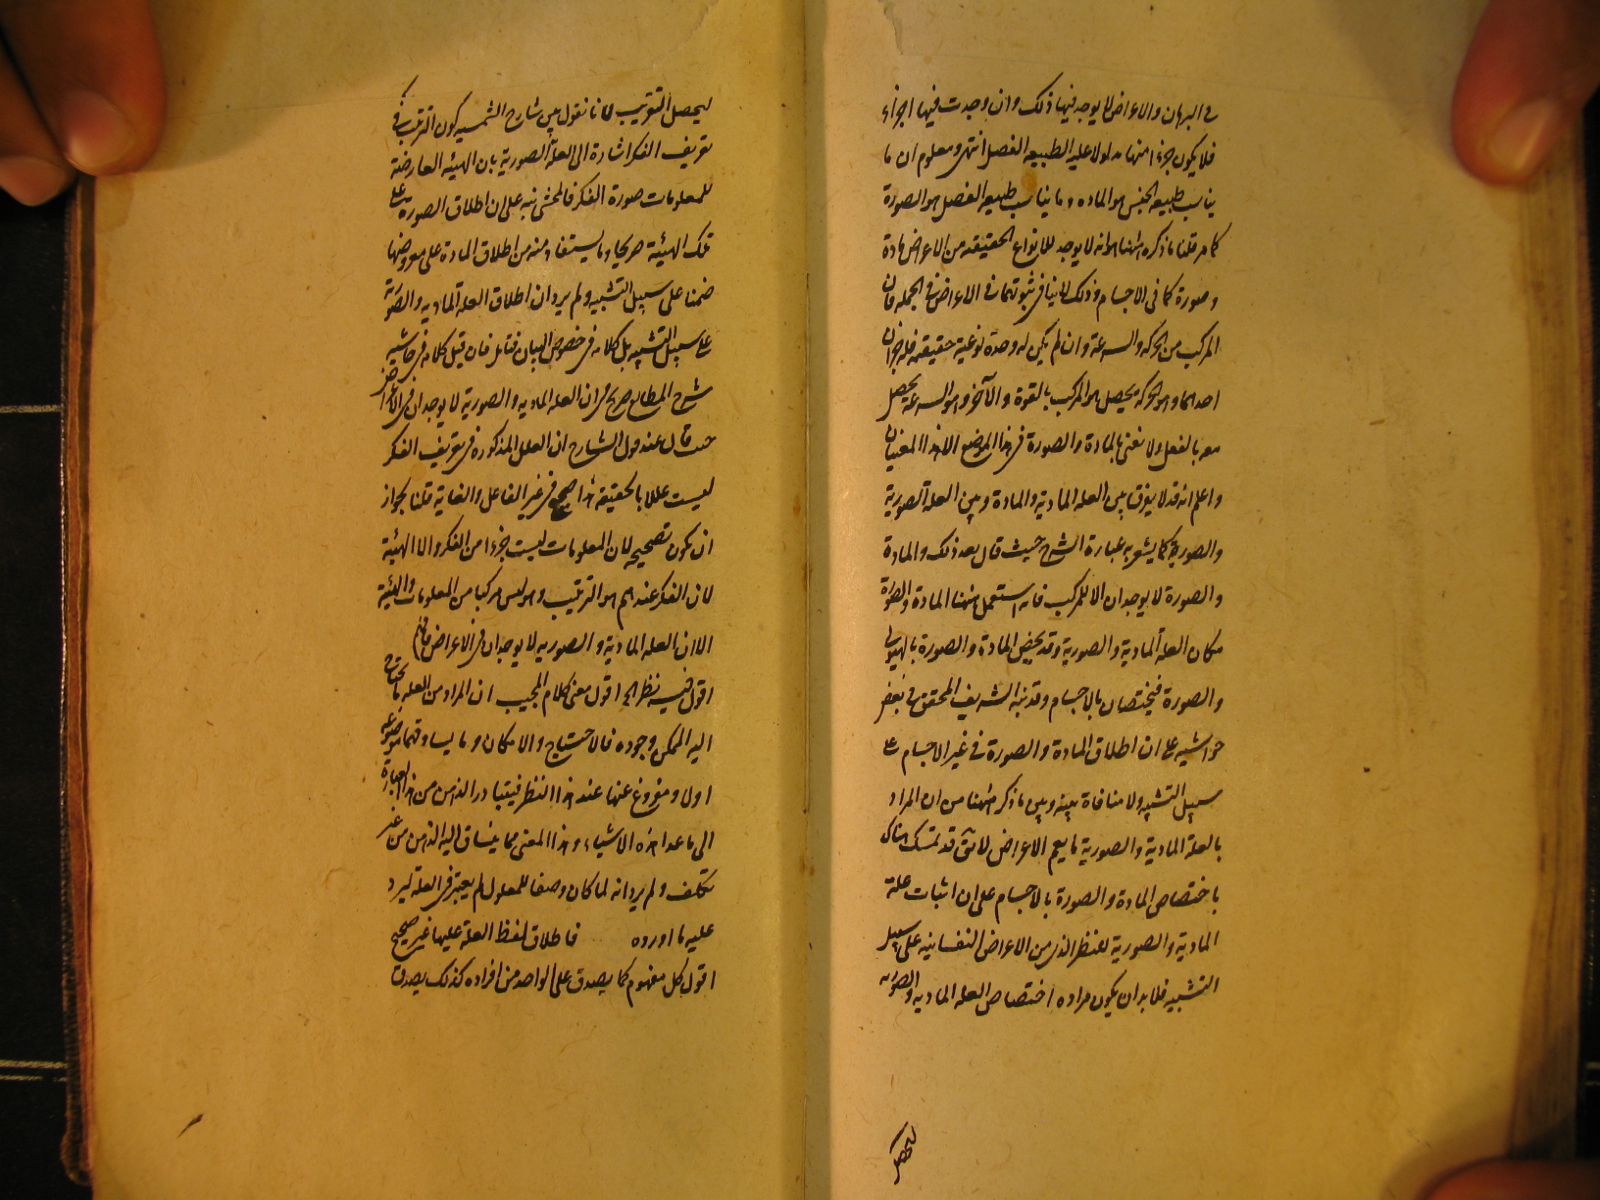 فى البرهان والاعراض لا يوجد فيها ذلك وان وجدت فيها اجزاء
فلا يكون جزء منها مدلولا عليه الطبيعه الفصل انتهى ومعلوم ان ما
يناسب طبيعه الجنس هو الماده وما يناسب طبيعه الفصل هو الصورة
كما مر قلنا ما ذكره ههنا هو انه لا يوجد للانواع الحقيقه من الاعراض مادة
وصورة كما فى الاجسام وذلك لا ينافى ثبوتهما فى الاعراض فى الجمله فان
المركب من الحركه والسرعة وان لم يكن له وحدة نوعية حقيقيه فله جزءان
احدهما وهو الحركه يحصل هو المركب بالقوة والآخر وهو السرعة يحصل
معه بالفعل ولا نعنى بالمادة والصورة فى هذا الموضع الا هذا المعنيان
واعلم انه قد لا يفرق بين العله المادية والمادة وبين العلة الصورية
والصورة كما يشعر به عبارة الشرح حيث قال بعد ذلك والمادة
والصورة لا يوجدان الا للمركب فانه استعمل ههنا المادة والصورة
مكان العلة المادية والصورية وقد يخص المادة والصورة بالهيولى
والصورة فيختصان بالاجسام وقد نبه الشريف المحقق فى بعض
حواشيه على ان اطلاق المادة والصورة فى غير الاجسام على
سبيل التشبيه ولا منافاة بينه وبين ما ذكر ههنا من ان المراد
بالعلة المادية والصورية ما يعم الاعراض لا يق قد تمسك هناك
باختصاص المادة والصورة بالاجسام على ان اثبات علة
المادية والصورية للنظر الذى من الاعراض النفسانيه على سبيل
التشبيه فلا بد ان يكون مراده اختصاص العله الماديه والصوريه
ليحصل
ليحصل التقريب لانا نقول بين شارح الشمسيه كون الترتيب فى
تعريف الفكر اشارة الى العلة الصورية بان الهيئه العارضة
للمعلومات صورة الفكر فالمحشى نبه على ان اطلاق الصورة على
تلك الهيئة صريحا وما يستفاد منه من اطلاق المادة على معروضها
ضمنا على سبيل التشبيه ولم يرد ان اطلاق العلة الماديه والصورية
على سبيل التشبيه بل كلامه فى خصوص البيان فتامل فان قيل كلامه فى حاشيه
شرح المطالع صريح فى ان العله الماديه والصورية لا يوجدان فى الاعراض
حيث قال عند قول الشارح ان العلل المذكورة فى تعريف الفكر
ليست عللا بالحقيقة هذا صحيح فى غير الفاعل والغاية قلنا يجوز
ان يكون تصحيحه لان المعلومات ليست جزءا من الفكر والا الهيئة
لان الفكر عندهم هو الترتيب وهو ليس مركبا من المعلومات والهيئة
الا ان العله المادية والصوريه لا يوجدان فى الاعراض فافهم
اقول فيه نظر الخ اقول معنى كلام المجيب ان المراد من العله ما يحتاج
اليه الممكن وجوده فالاحتياج والامكان وما يساوقهما موضوعه
اولا ومفروغ عنها عند هذا النظر فيتبادر الذهن من هذا العبارة
الى ما عدا هذه الاشياء وهذا المعنى مما ينساق اليه الذهن من غير
تكلف ولم يرد انه لما كان وصفا للمعلول لم يعتبر فى العلة ليرد
عليه ما اورده فاطلاق لفظ العلة عليها غير صحيح
اقول كل مفهوم كما يصدق على الواحد من افراده كذلك يصدق